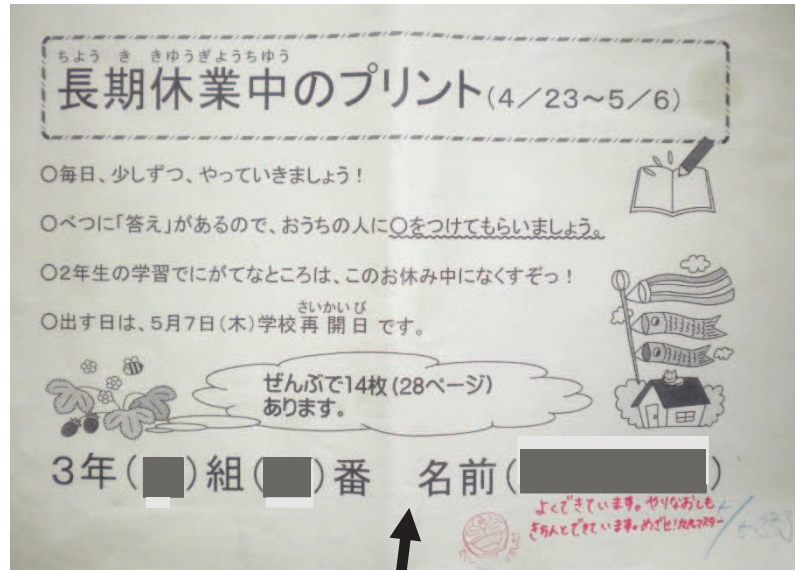 ちょう き きゅうぎょうちゅう
長期休業中のプリント(4/23~5/6)
○毎日、少しずつ、やっていきましょう！
○べつに「答え」があるので、おうちの人に○をつけてもらいましょう。
○2年生の学習でにがてなところは、このお休み中になくすぞっ！
さいかいび
○出す日は、5月7日(木)学校再開日です。
ぜんぶで14枚(28ページ)
あります。
3年( )組( )番 名前( )
よくできています。やりなおしも
きちんとできています。めざせ!